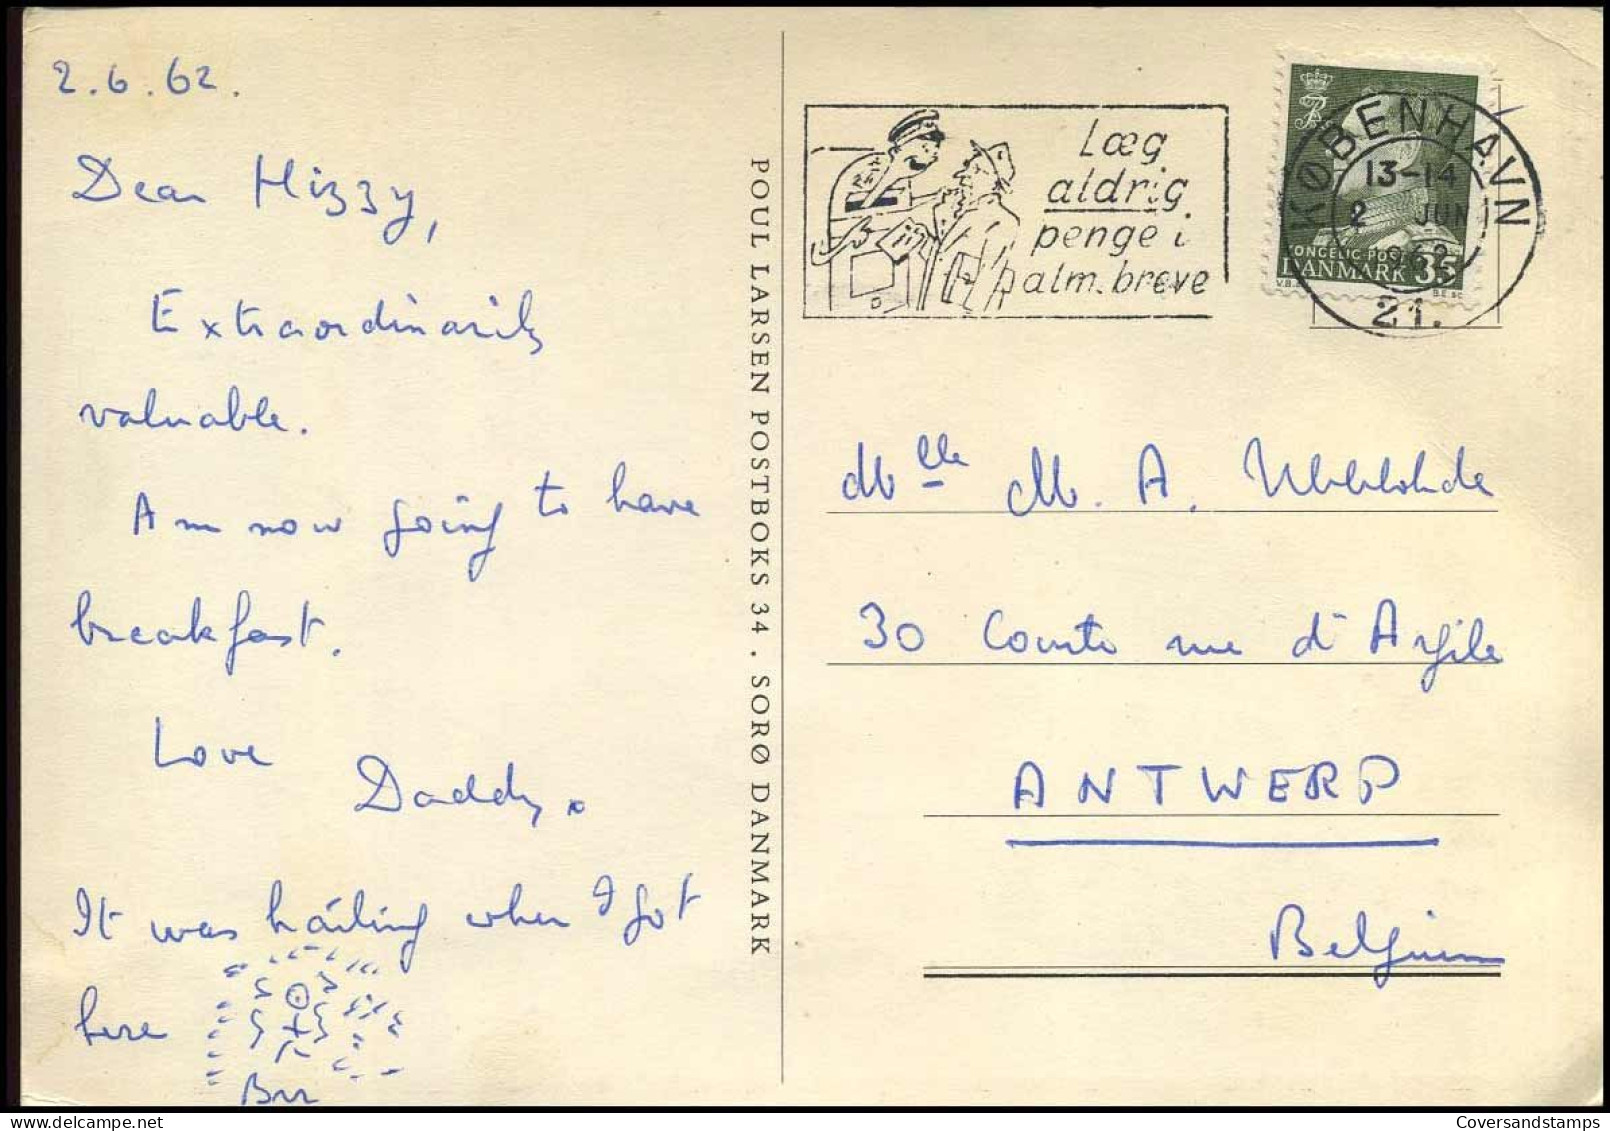 2.6.62.
Dear Hizzy,
Extraordinarily
valuable.
Am now going to have
breakfast.
Love
Daddy.
It was hailing when I got
here
Brr
POUL LARSEN POSTBOKS 34. SORØ DANMARK
Læg
aldrig
penge i
alm. breve
KØBENHAVN
13-14
2 JUN
1962
21.
KONGELIG POST
DANMARK 35
Mlle M. A.
30 Courte rue d'Argile
ANTWERP
Belgium
Coversandstamps